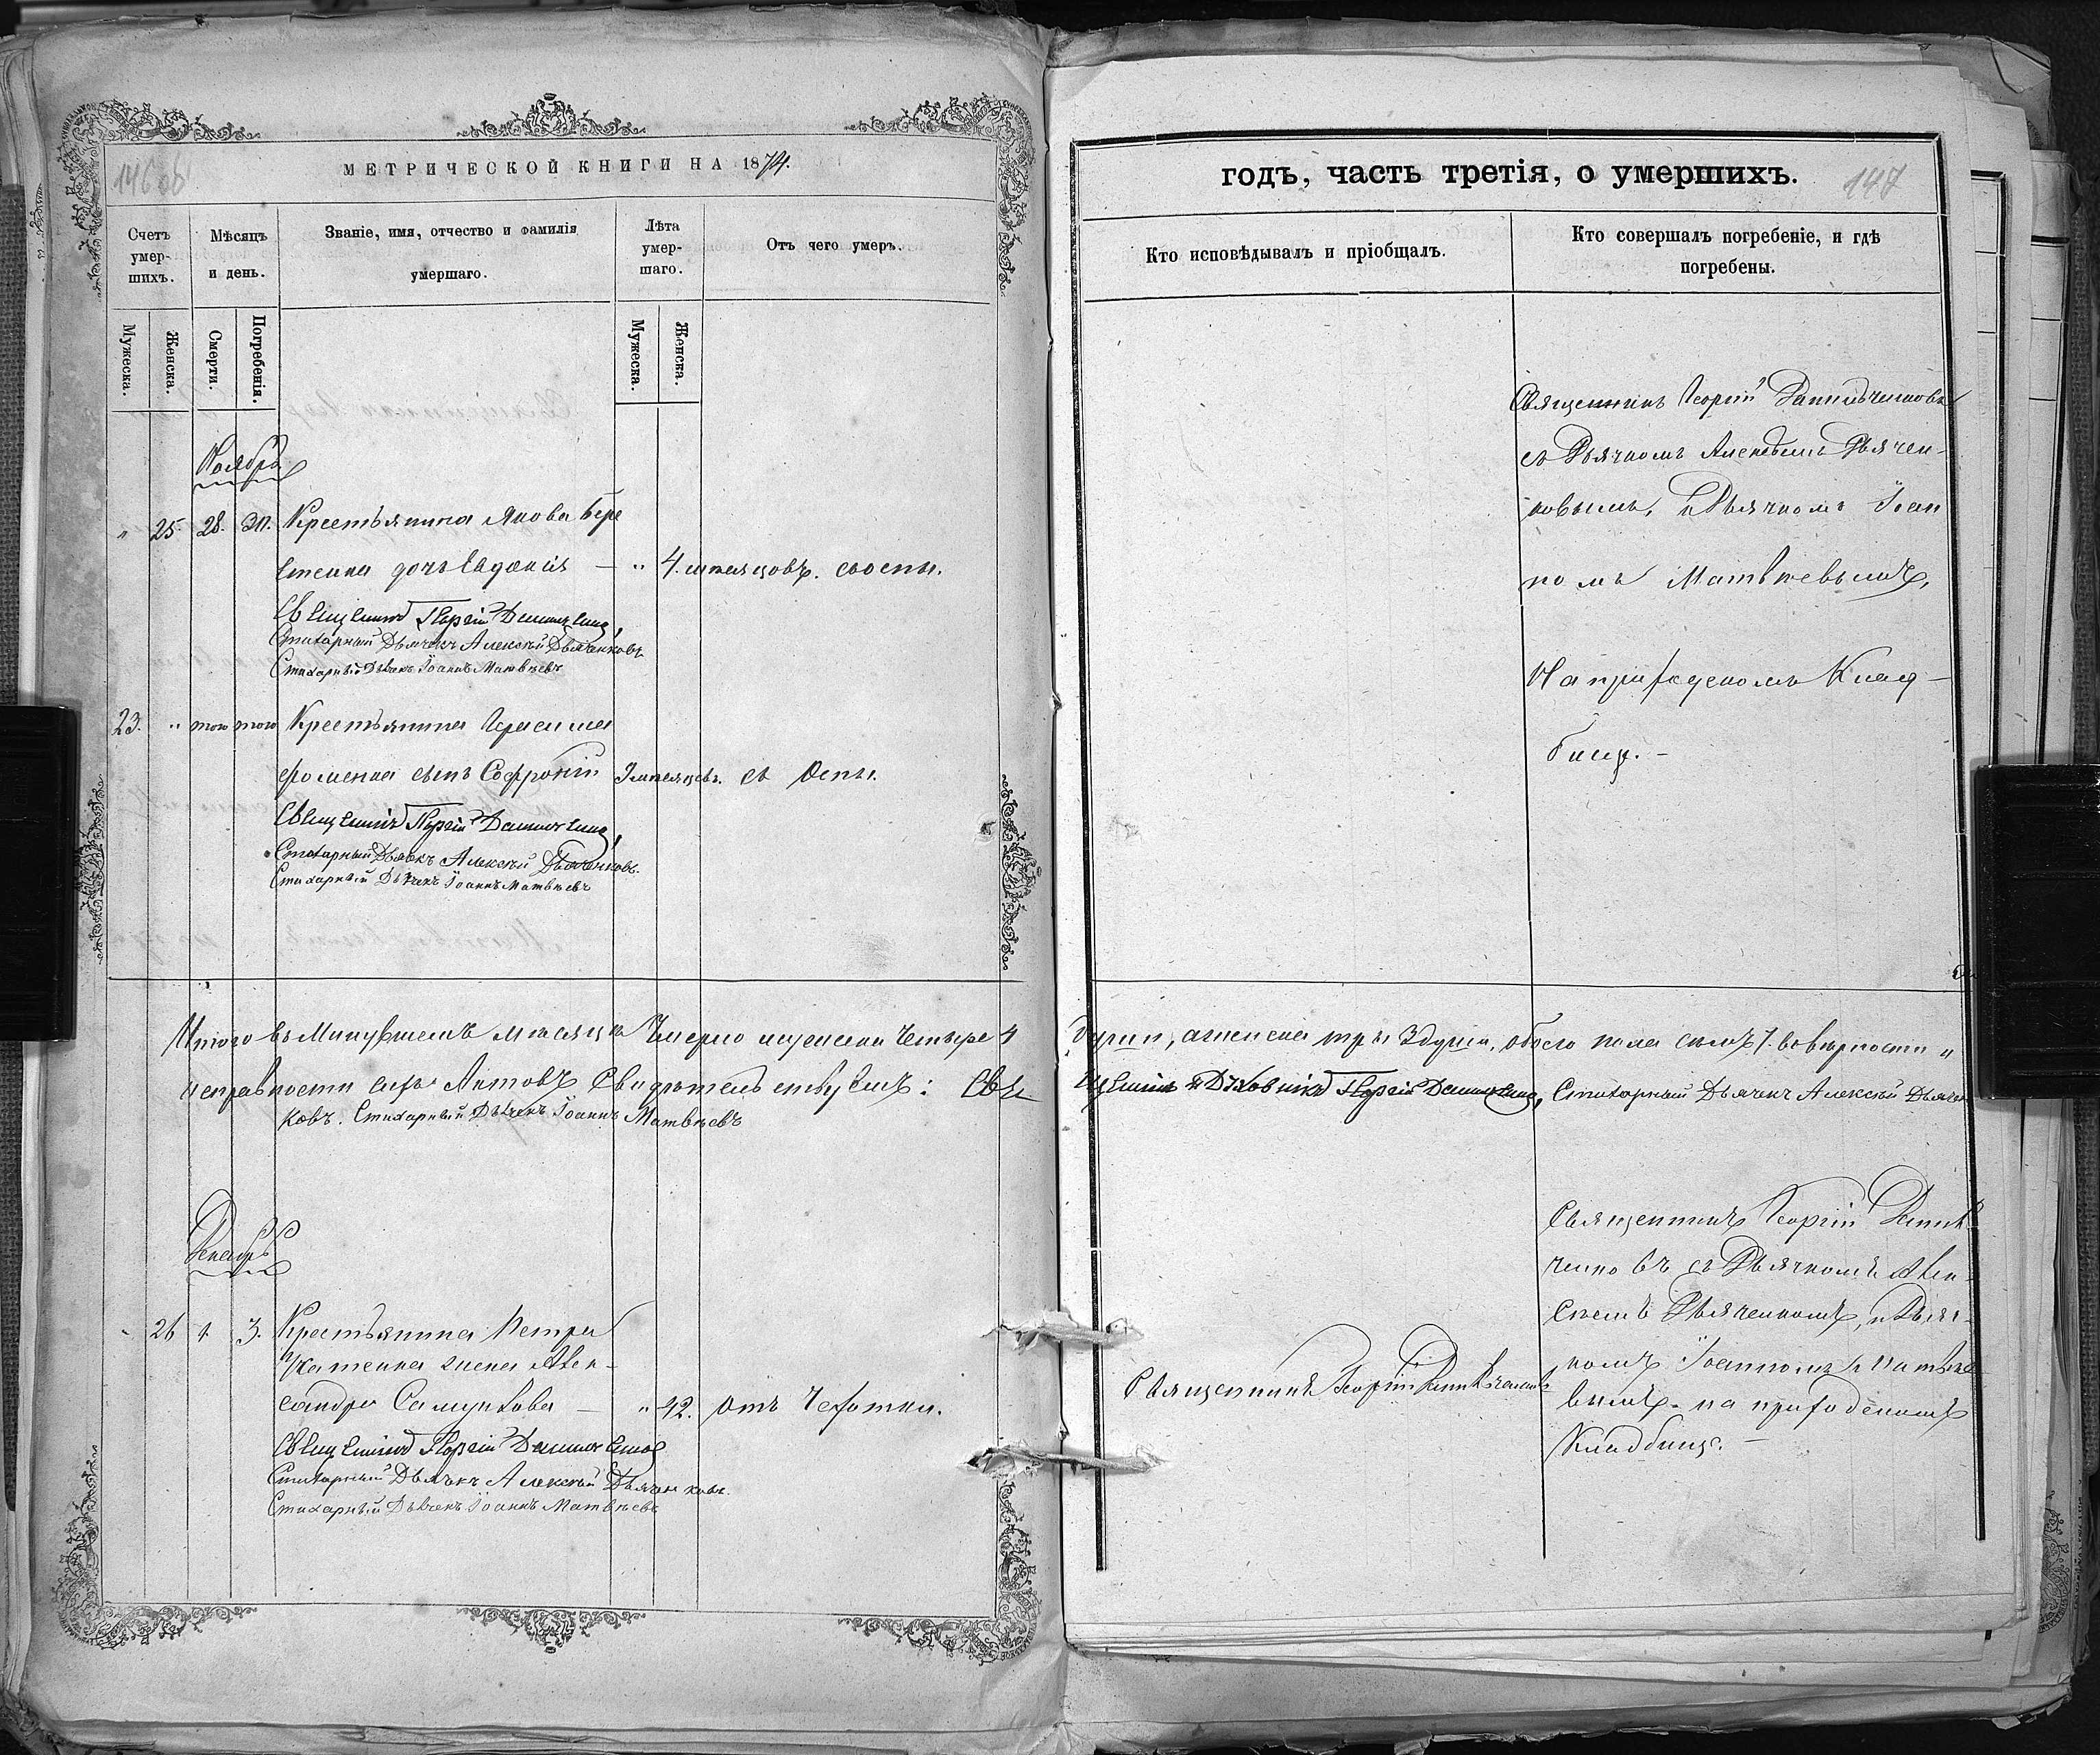 146об
МЕТРИЧЕСКОЙ КНИГИ НА 1874.
Счетъ умер- шихъ.
Мѣсяцъ и день.
Званіе, имя, отчество и фамилія умершаго.
Лѣта умер- шаго.
Отъ чего умеръ.
Мужеска.
Женска.
Смерти.
Погребенія.
Мужеска.
Женска.
Ноябрь
" 25 28. 30. Крестьянина Якова Бере
дочь Евдокія — " 4. мѣсяцовъ. съ оспы.
Священникъ Георгій
Стихарный Дьячекъ Алексѣй Дьяченковъ
Стихарный Дьячекъ Іоаннъ Матвѣевъ
23. " того того Крестьянина Герасима
Фоменка сынъ Софроній мѣсяцевъ. съ Оспы.
Священникъ Георгій
Стихарный Дьячекъ Алексѣй Дьяченковъ.
Стихарный Дьячекъ Іоаннъ Матвѣевъ
Итого въ Минувшемъ мѣсяцѣ Умерло мужеска Четыре 4
исправности сихъ Актовъ Свидѣтельствуемъ: Свя
ковъ. Стихарный Дьячекъ Іоаннъ Матвѣевъ
Декабрь
26 1. 3. Крестьянина Петра
жена Алек-
сандра Самуилова — " 42. отъ Чахотки.
Священникъ Георгій
Стихарный Дьячекъ Алексѣй Дьяченковъ.
Стихарный Дьячекъ Іоаннъ Матвѣевъ
годъ, часть третія, о умершихъ.
147
Кто исповѣдывалъ и пріобщалъ.
Кто совершалъ погребеніе, и гдѣ погребены.
Священникъ Георгій
съ Дьячкомъ Алексѣемъ Дьячен-
ковымъ, и Дьячкомъ Іоан
номъ Матвѣевымъ,
На приходскомъ Клад-
бищѣ. -
души, а женска три 3 души, обоего пола семь 7. въ вѣрности и
щенникъ и Духовникъ Георгій Стихарный Дьячекъ Алексѣй Дьячен
Священникъ Георгій
Священникъ Георгій
ченковъ съ Дьячкомъ Алек-
сѣемъ Дьяченкомъ, и Дьяч-
комъ Іоанномъ Матвѣе
вымъ. на приходскомъ
Кладбищѣ. —